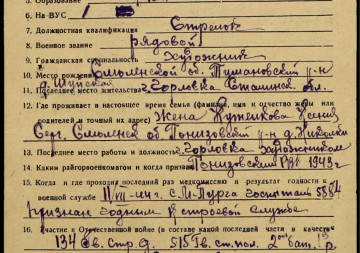 5. Образование
6. На-ВУС
7. Должностная квалификация Стрелок
8. Военное звание рядовой
9. Гражданская специальность художник
10. Место рождения Смоленской об. Тумановский р-н
11. Последнее место жительства г. Горловка Сталинск. обл.
12. Где проживает в настоящее время семья (фамилия, имя и отчество жены или
родителей и точный их адрес) Жена
Серг. Смоленск об Понизовский р-н д.
13. Последнее место работы и должность Горловка художником
14. Каким райгорвоенкоматом и когда призван Понизовский РВК 1943 г
15. Когда и где проходил последний раз медкомиссию и результат годности к
военной службе госпиталь 5384
признан годным к строевой службе
16. Участие в Отечественной войне (в составе какой последней части и в качестве
134 Гв. стр. д. 515 Гв. ст. пол. 2ой бат.